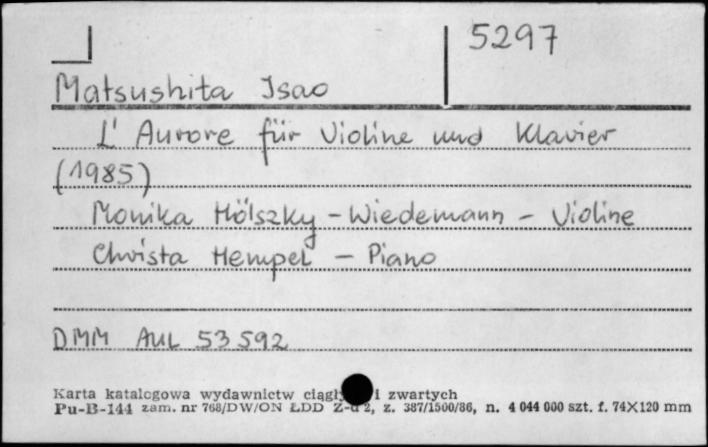 5297
Matsushita Isao
L' Aurore für Violine und Klavier
(1985)
Monika Hölszky - Wiedemann - Violine
Christa Hempel - Piano
DMM AUL 53 592
Karta katalogowa wydawnictw i zwartych
Pu-B-144 zam. nr 768/DW/ON ŁDD 2, z. 387/1500/86, n. 4 044 000 szt. f. 74X120 mm